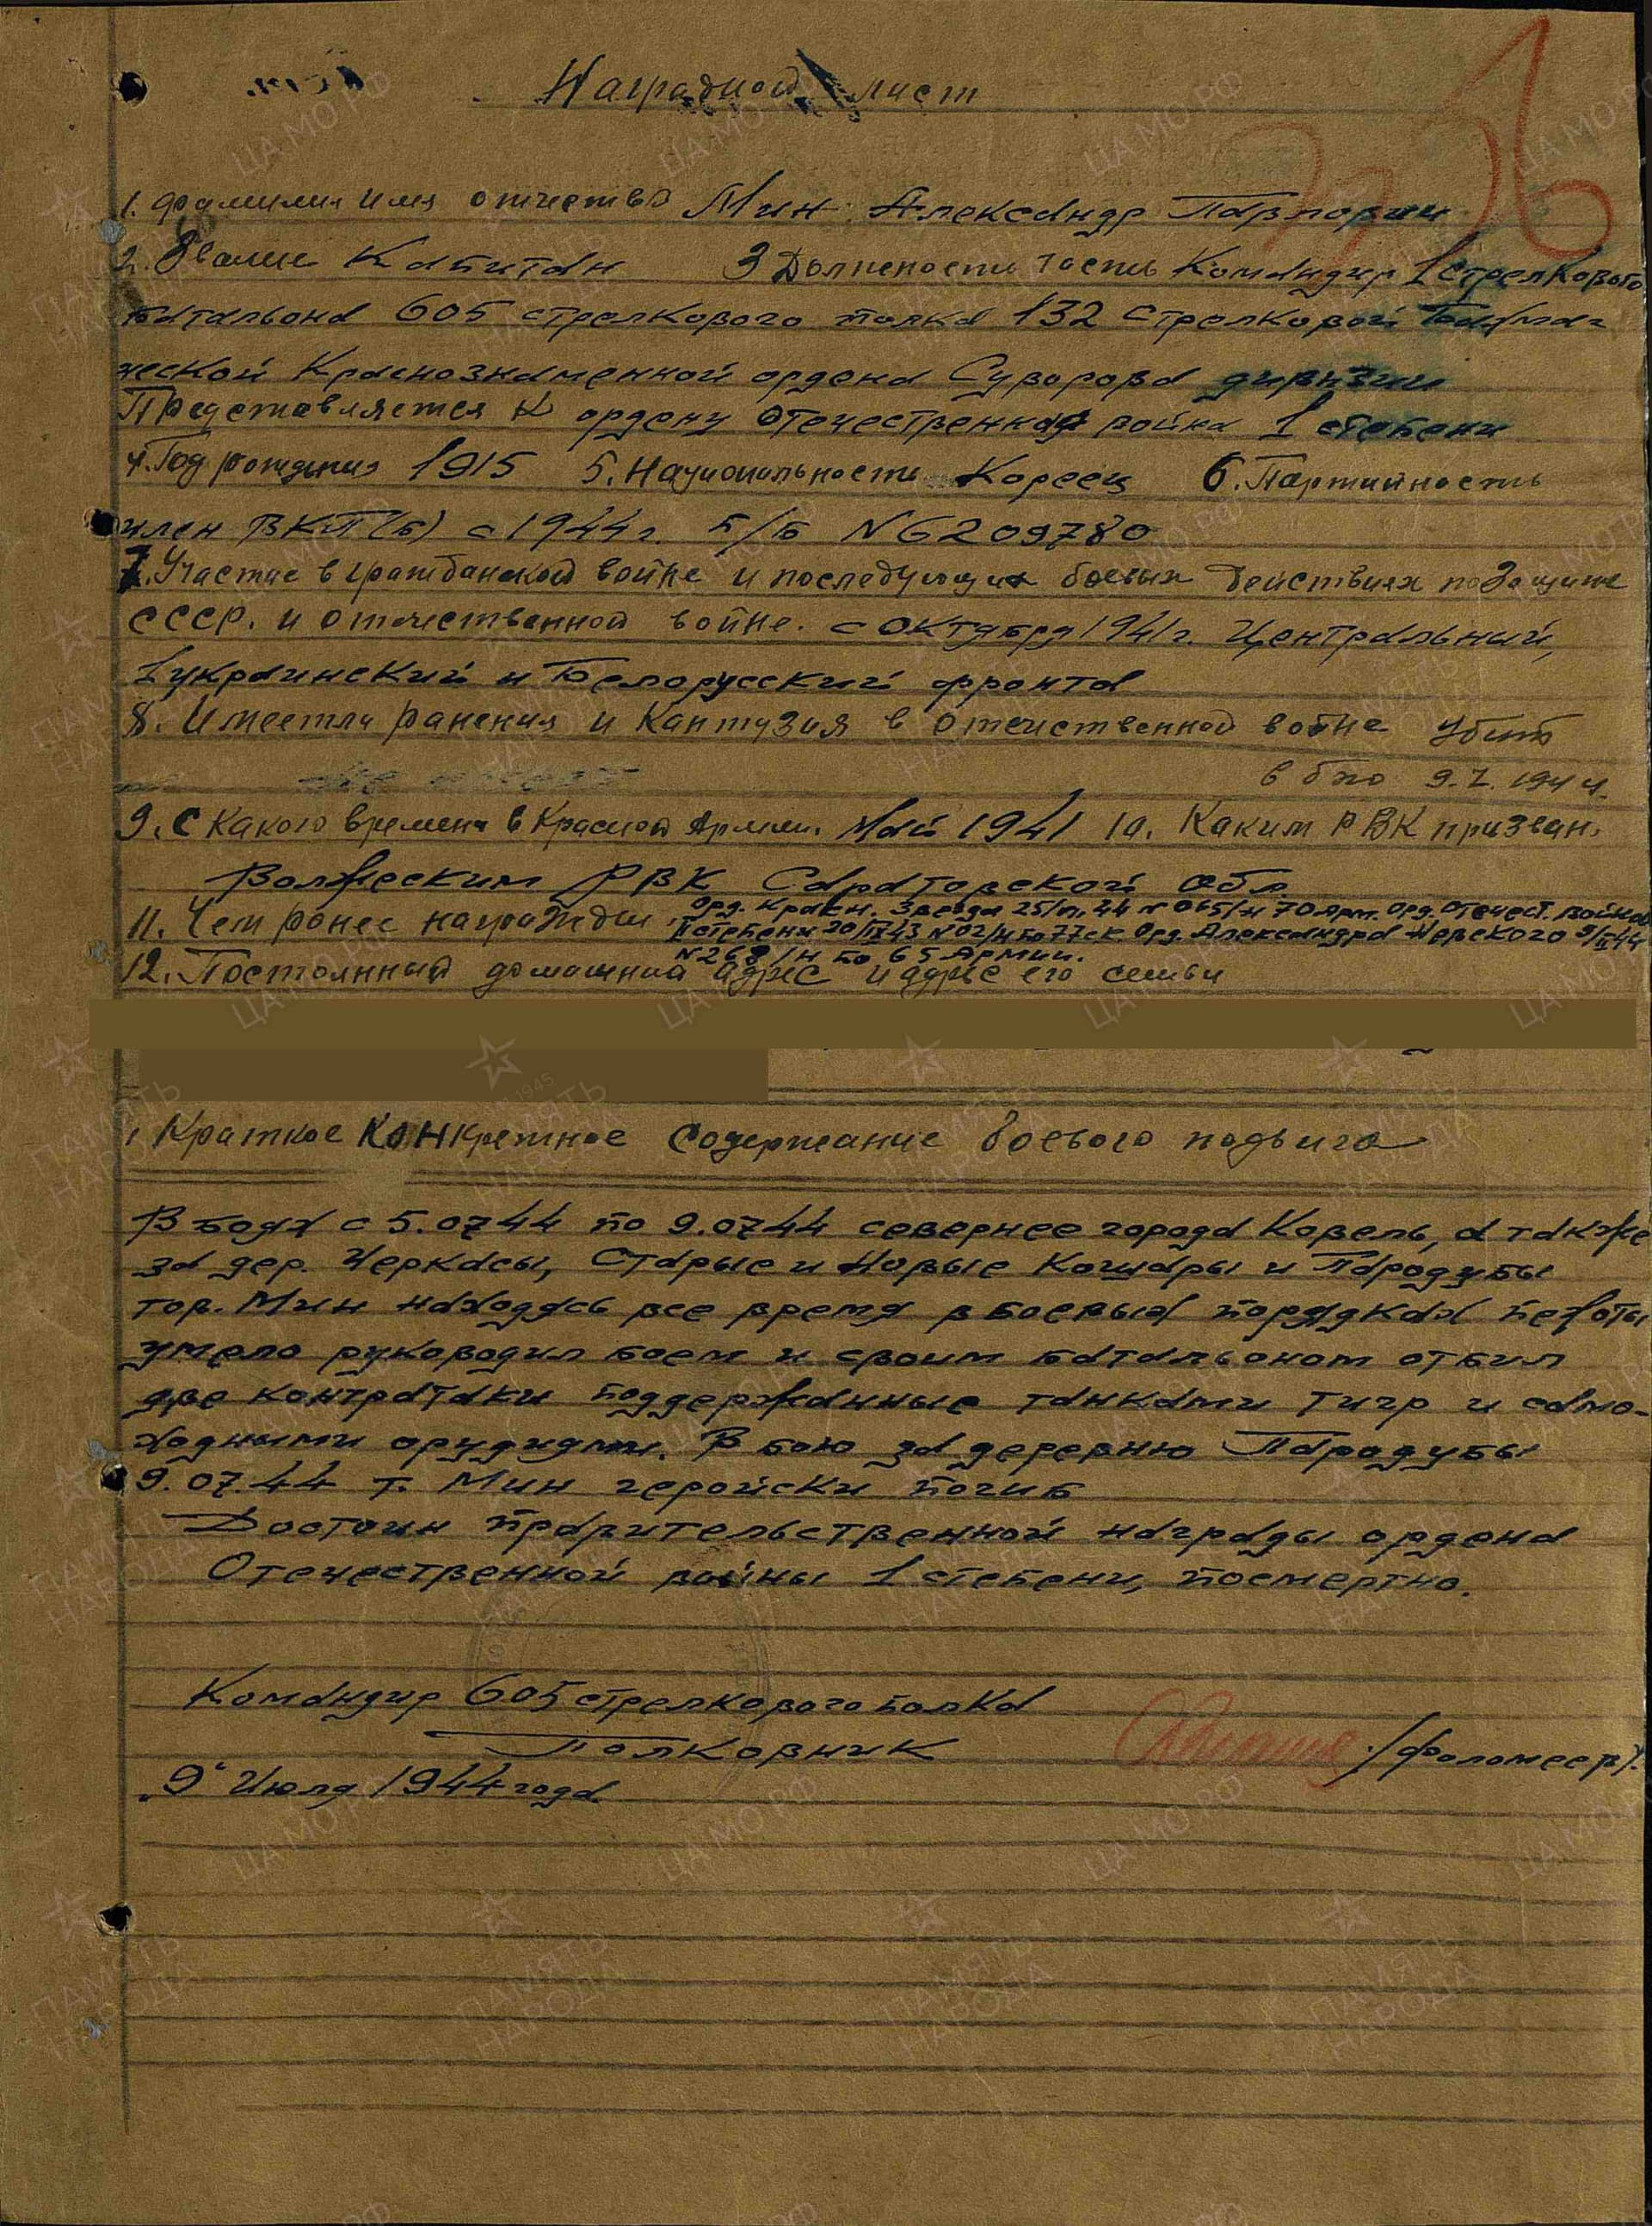 Наградной лист
1. Фамилия имя отчество Мин Александр Парпорин
2. Звание Капитан 3 Должность часть Командир 1 стрелкового
батальона 605 стрелкового полка 132 стрелковой Бахма-
ческой Краснознаменной ордена Суворова дивизии
Представляется к ордену Отечественная война 1 степени
4. Год рождения 1915 5. Национальность Кореец 6. Партийность
член ВКП(б) с 1944 г. п/б N 6209780
7. Участие в гражданской войне и последующих боевых действиях по защите
СССР. и отечественной войне. с октября 1941 г. Центральный,
1 украинский и Белорусский фронта
8. Имеет ли ранения и Кантузия в отечественной войне убит
в бою 9.7.1944.
9. С какого времени в Красной Армии. Май 1941 10. Каким РВК призван.
Вольжским РВК Саратовской обл
11. Чем ранее награжден Орд. Красн. Звезда 25/II.44 N 065/н 70 Арм. Орд. Отечест. война
II степени 20/IX 43 N 02/н по 77 ск. Орд. Александра Невского 9/II 44
N 268/н по 65 Армии.
12. Постоянный домашний адрес и адрес его семьи
Краткое Конкретное Содержание боевого подвига
В боях с 5.07.44 по 9.07.44 севернее города Ковель, а также
за дер. Черкасы, Старые и Новые Кошары и Пародубы
тов. Мин находясь все время в боевых порядках пехоты
умело руководил боем и своим батальоном отбил
две контратаки поддержанные танками Тигр и само-
ходными орудиями. В бою за деревню Пародубы
9.07.44 т. Мин геройски погиб
Достоин правительственной награды ордена
Отечественной войны 1 степени, посмертно.
Командир 605 стрелкового полка
Полковник /Фоломеев/.
"9" Июля 1944 года
ПАМЯТЬ НАРОДА
ЦА МО РФ